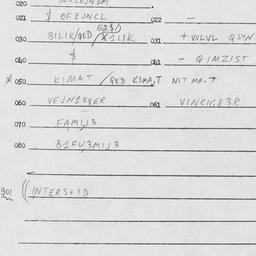 020
021 $ OFEJNCL 022 —
030 BILIK/QED /X1LIK 031 + VOLVL QSYN
040 $ 041 — QIMZIST
050 KIMAT /QED KIMA,T NITMA-T
060 VEJN1K8ER 061 VINCIG83R
070 FAMIJ3
080 B1FU3MIJ3
901 ((INTERS+ID